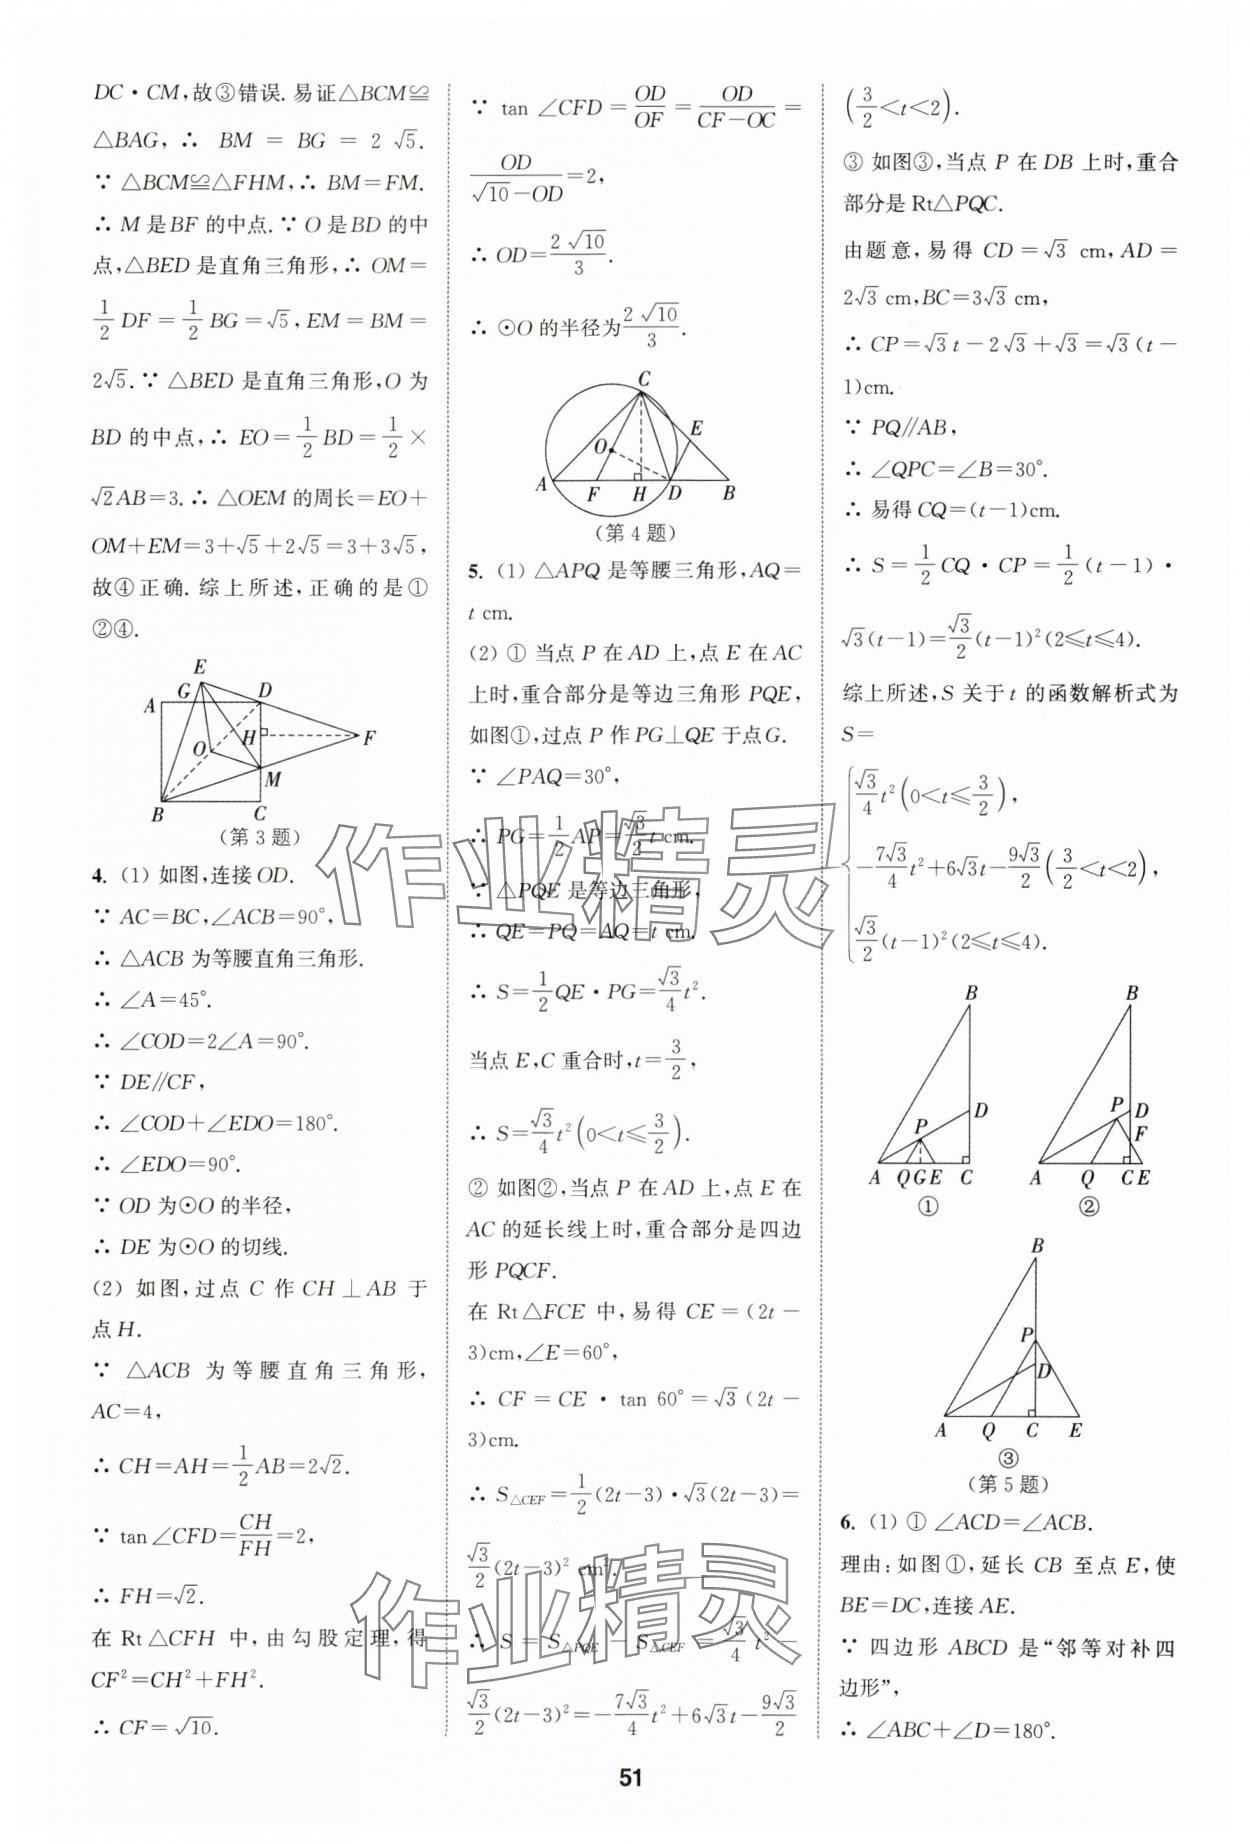 DC·CM,故③错误.易证△BCM≌
△BAG,∴ BM = BG = 2√5.
∵ △BCM≌△FHM,∴ BM=FM.
∴ M是BF的中点.∵ O是BD的中
点,△BED是直角三角形,∴ OM=
1/2 DF=1/2 BG=√5,EM=BM=
2√5.∵ △BED是直角三角形,O为
BD的中点,∴ EO=1/2 BD=1/2×
√2AB=3.∴ △OEM的周长=EO+
OM+EM=3+√5+2√5=3+3√5,
故④正确.综上所述,正确的是①
②④.
E
G
D
A
H
F
O
M
B
C
(第3题)
4. (1) 如图,连接OD.
∵ AC=BC,∠ACB=90°,
∴ △ACB为等腰直角三角形.
∴ ∠A=45°.
∴ ∠COD=2∠A=90°.
∵ DE∥CF,
∴ ∠COD+∠EDO=180°.
∴ ∠EDO=90°.
∵ OD为⊙O的半径,
∴ DE为⊙O的切线.
(2) 如图,过点C作CH⊥AB于
点H.
∵ △ACB为等腰直角三角形,
AC=4,
∴ CH=AH=1/2 AB=2√2.
∵ tan∠CFD=CH/FH=2,
∴ FH=√2.
在Rt△CFH中,由勾股定理,得
CF²=CH²+FH².
∴ CF=√10.
∵ tan∠CFD=OD/OF=OD/(CF-OC)=
OD/(√10-OD)=2,
∴ OD=2√10/3.
∴ ⊙O的半径为2√10/3.
C
E
O
A
F
H
D
B
(第4题)
5. (1) △APQ是等腰三角形,AQ=
t cm.
(2) ① 当点P在AD上,点E在AC
上时,重合部分是等边三角形PQE,
如图①,过点P作PG⊥QE于点G.
∵ ∠PAQ=30°,
∴ PG=1/2 AP=√3/2 t cm.
∵ △PQE是等边三角形,
∴ QE=PQ=AQ=t cm.
∴ S=1/2 QE·PG=√3/4 t².
当点E,C重合时,t=3/2,
∴ S=√3/4 t²(0<t≤3/2).
② 如图②,当点P在AD上,点E在
AC的延长线上时,重合部分是四边
形PQCF.
在Rt△FCE中,易得CE=(2t-
3)cm,∠E=60°,
∴ CF=CE·tan 60°=√3(2t-
3)cm.
∴ S△CEF=1/2(2t-3)·√3(2t-3)=
√3/2(2t-3)² cm².
∴ S=S△PQE-S△CEF=√3/4 t²-
√3/2(2t-3)²=-7√3/4 t²+6√3t-9√3/2
(3/2<t<2).
③ 如图③,当点P在DB上时,重合
部分是Rt△PQC.
由题意,易得CD=√3 cm,AD=
2√3 cm,BC=3√3 cm,
∴ CP=√3t-2√3+√3=√3(t-
1)cm.
∵ PQ∥AB,
∴ ∠QPC=∠B=30°.
∴ 易得CQ=(t-1)cm.
∴ S=1/2 CQ·CP=1/2(t-1)·
√3(t-1)=√3/2(t-1)²(2≤t≤4).
综上所述,S关于t的函数解析式为
S=
{ √3/4 t²(0<t≤3/2),
-7√3/4 t²+6√3t-9√3/2(3/2<t<2),
√3/2(t-1)²(2≤t≤4).
B
D
P
A
Q
G
E
C
①
B
P
D
F
A
Q
C
E
②
B
P
D
A
Q
C
E
③
(第5题)
6. (1) ① ∠ACD=∠ACB.
理由:如图①,延长CB至点E,使
BE=DC,连接AE.
∵ 四边形ABCD是“邻等对补四
边形”,
∴ ∠ABC+∠D=180°.
作业精灵
作业精灵
51